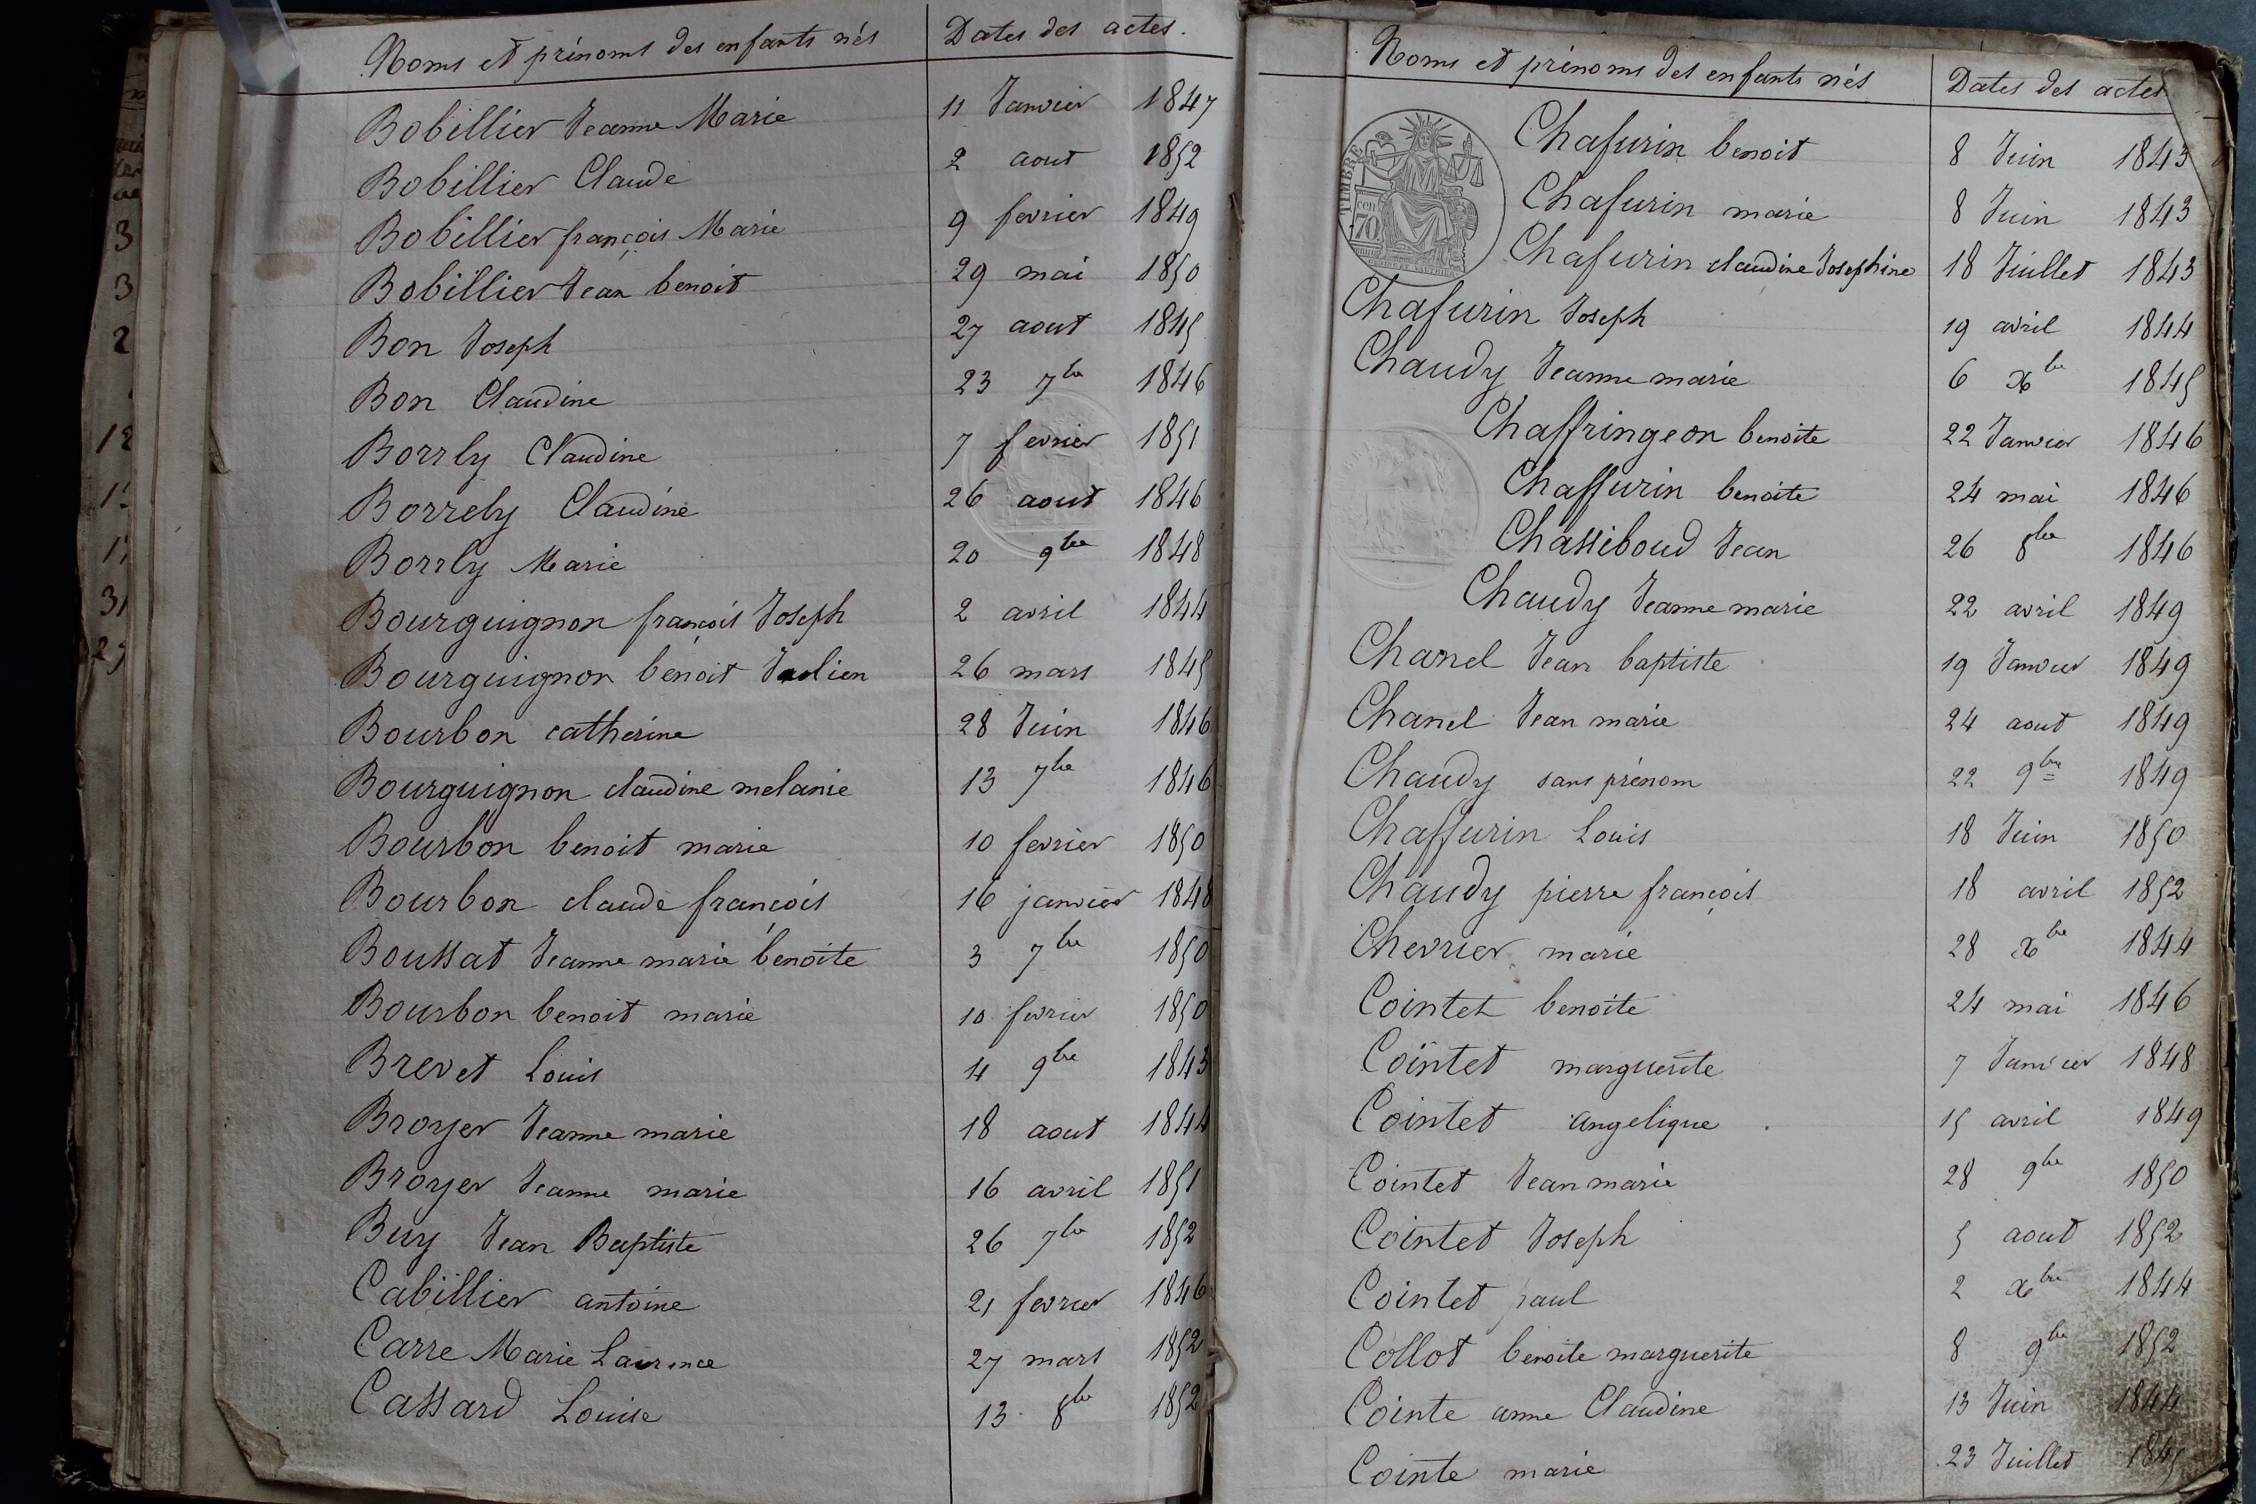 Noms et prénoms des enfants nés Dates des actes.
Bobillier Jeanne Marie 11 Janvier 1847
Bobillier Claude 2 aout 1852
Bobillier françois Marie 9 fevrier 1849
Bobillier Jean benoit 29 mai 1850
Bon Joseph 27 aout 1845
Bon Claudine 23 7bre 1846
Borrly Claudine 7 fevrier 1851
Borrely Claudine 26 aout 1846
Borrly Marie 20 9bre 1848
Bourguignon françois Joseph 2 avril 1844
Bourguignon benoit Julien 26 mars 1845
Bourbon catherine 28 Juin 1846
Bourguignon claudine melanie 13 7bre 1846
Bourbon benoit marie 10 fevrier 1850
Bourbon claude françois 16 janvier 1848
Boussat Jeanne marie benoite 3 7bre 1850
Bourbon benoit marie 10 fevrier 1850
Brevet Louis 4 9bre 1843
Broyer Jeanne marie 18 aout 1844
Broyer Jeanne marie 16 avril 1851
Buy Jean Baptiste 26 7bre 1852
Cabillier antoine 21 fevrier 1846
Carre Marie Laurence 27 mars 1852
Cassard Louise 13 8bre 1852
Noms et prénoms des enfants nés Dates des actes
TIMBRE
cen
70
Chafurin benoit 8 Juin 1843
Chafurin marie 8 Juin 1843
Chafurin claudine Josephine 18 Juillet 1843
Chafurin Joseph 19 avril 1844
Chaudy Jeanne marie 6 Xbre 1845
Chaffringeon benoite 22 Janvier 1846
Chaffurin benoite 24 mai 1846
Chassiboud Jean 26 8bre 1846
Chaudy Jeanne marie 22 avril 1849
Chanel Jean baptiste 19 Janvier 1849
Chanel Jean marie 24 aout 1849
Chaudy sans prénom 22 9bre 1849
Chaffurin Louis 18 Juin 1850
Chaudy pierre françois 18 avril 1852
Chevrier marie 28 Xbre 1844
Cointet benoite 24 mai 1846
Cointet marguerite 7 Janvier 1848
Cointet angelique 15 avril 1849
Cointet Jean marie 28 9bre 1850
Cointet Joseph 5 aout 1852
Cointet paul 2 Xbre 1844
Collot benoite marguerite 8 9bre 1852
Cointe anne Claudine 13 Juin 1844
Cointe marie 23 Juillet 1845